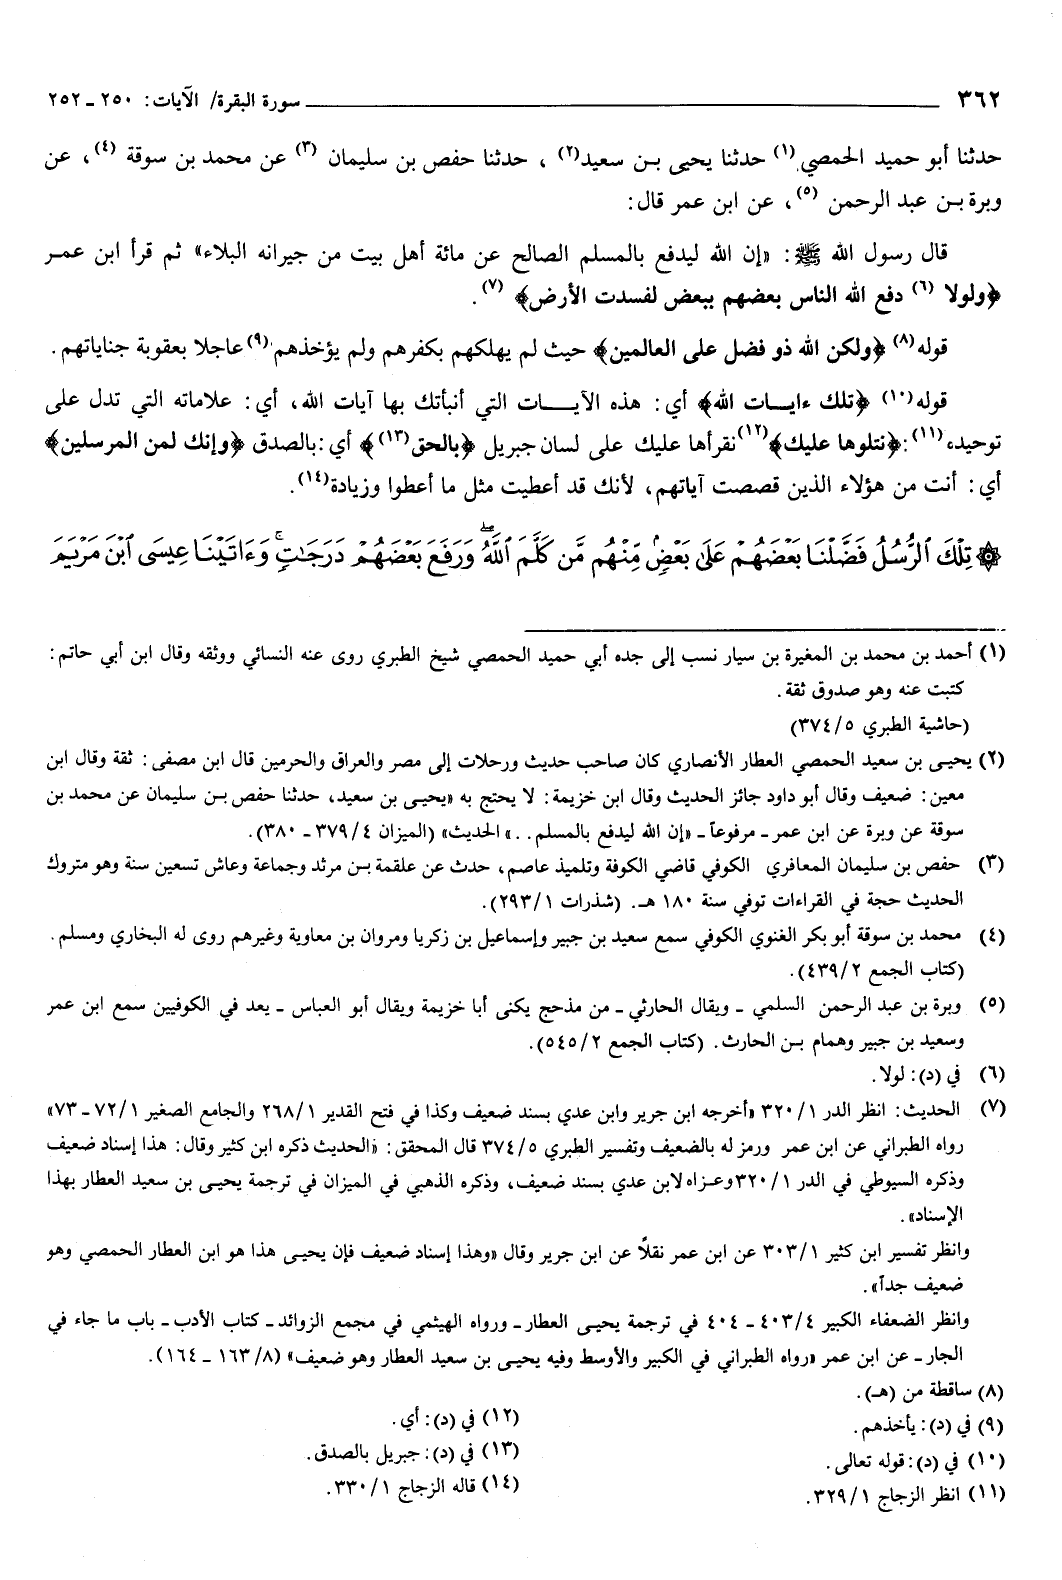 ٣٦٢ سورة البقرة/ الآيات: ٢٥٠ ـ ٢٥٢
حدثنا أبو حميد الحمصي(١) حدثنا يحيى بن سعيد(٢) ، حدثنا حفص بن سليمان (٣) عن محمد بن سوقة (٤)، عن
وبرة بن عبد الرحمن (٥)، عن ابن عمر قال:
قال رسول الله ﷺ: «إن الله ليدفع بالمسلم الصالح عن مائة أهل بيت من جيرانه البلاء» ثم قرأ ابن عمر
﴿ولولا (٦) دفع الله الناس بعضهم ببعض لفسدت الأرض﴾ (٧).
قوله(٨) ﴿ولكن الله ذو فضل على العالمين﴾ حيث لم يهلكهم بكفرهم ولم يؤخذهم(٩) عاجلا بعقوبة جناياتهم.
قوله(١٠) ﴿تلك ءايات الله﴾ أي: هذه الآيات التي أنبأتك بها آيات الله، أي: علاماته التي تدل على
توحيده(١١): ﴿نتلوها عليك﴾(١٢) نقرأها عليك على لسان جبريل ﴿بالحق(١٣)﴾ أي: بالصدق ﴿وإنك لمن المرسلين﴾
أي: أنت من هؤلاء الذين قصصت آياتهم، لأنك قد أعطيت مثل ما أعطوا وزيادة(١٤).
۞ تِلْكَ ٱلرُّسُلُ فَضَّلْنَا بَعْضَهُمْ عَلَىٰ بَعْضٍۢ مِّنْهُم مَّن كَلَّمَ ٱللَّهُ ۖ وَرَفَعَ بَعْضَهُمْ دَرَجَٰتٍۢ ۚ وَءَاتَيْنَا عِيسَى ٱبْنَ مَرْيَمَ
(١) أحمد بن محمد بن المغيرة بن سيار نسب إلى جده أبي حميد الحمصي شيخ الطبري روى عنه النسائي ووثقه وقال ابن أبي حاتم:
كتبت عنه وهو صدوق ثقة.
(حاشية الطبري ٥/ ٣٧٤)
(٢) يحيى بن سعيد الحمصي العطار الأنصاري كان صاحب حديث ورحلات إلى مصر والعراق والحرمين قال ابن مصفى: ثقة وقال ابن
معين: ضعيف وقال أبو داود جائز الحديث وقال ابن خزيمة: لا يحتج به «يحيى بن سعيد، حدثنا حفص بن سليمان عن محمد بن
سوقة عن وبرة عن ابن عمر ـ مرفوعاً ـ «إن الله ليدفع بالمسلم. .» الحديث» (الميزان ٤/ ٣٧٩ ـ ٣٨٠).
(٣) حفص بن سليمان المعافري الكوفي قاضي الكوفة وتلميذ عاصم، حدث عن علقمة بن مرثد وجماعة وعاش تسعين سنة وهو متروك
الحديث حجة في القراءات توفي سنة ١٨٠ هـ. (شذرات ١/ ٢٩٣).
(٤) محمد بن سوقة أبو بكر الغنوي الكوفي سمع سعيد بن جبير وإسماعيل بن زكريا ومروان بن معاوية وغيرهم روى له البخاري ومسلم.
(كتاب الجمع ٢/ ٤٣٩).
(٥) وبرة بن عبد الرحمن السلمي ـ ويقال الحارثي ـ من مذحج يكنى أبا خزيمة ويقال أبو العباس ـ يعد في الكوفيين سمع ابن عمر
وسعيد بن جبير وهمام بن الحارث. (كتاب الجمع ٢/ ٥٤٥).
(٦) في (د): لولا.
(٧) الحديث: انظر الدر ١/ ٣٢٠ «أخرجه ابن جرير وابن عدي بسند ضعيف وكذا في فتح القدير ١/ ٢٦٨ والجامع الصغير ١/ ٧٢ ـ ٧٣»
رواه الطبراني عن ابن عمر ورمز له بالضعيف وتفسير الطبري ٥/ ٣٧٤ قال المحقق: «الحديث ذكره ابن كثير وقال: هذا إسناد ضعيف
وذكره السيوطي في الدر ١/ ٣٢٠ وعزاه لابن عدي بسند ضعيف، وذكره الذهبي في الميزان في ترجمة يحيى بن سعيد العطار بهذا
الإسناد».
وانظر تفسير ابن كثير ١/ ٣٠٣ عن ابن عمر نقلاً عن ابن جرير وقال «وهذا إسناد ضعيف فإن يحيى هذا هو ابن العطار الحمصي وهو
ضعيف جداً».
وانظر الضعفاء الكبير ٤/ ٤٠٣ ـ ٤٠٤ في ترجمة يحيى العطار ـ ورواه الهيثمي في مجمع الزوائد ـ كتاب الأدب ـ باب ما جاء في
الجار ـ عن ابن عمر «رواه الطبراني في الكبير والأوسط وفيه يحيى بن سعيد العطار وهو ضعيف» (٨/ ١٦٣ ـ ١٦٤).
(٨) ساقطة من (هـ).
(٩) في (د): يأخذهم.
(١٠) في (د): قوله تعالى.
(١١) انظر الزجاج ١/ ٣٢٩.
(١٢) في (د): أي.
(١٣) في (د): جبريل بالصدق.
(١٤) قاله الزجاج ١/ ٣٣٠.